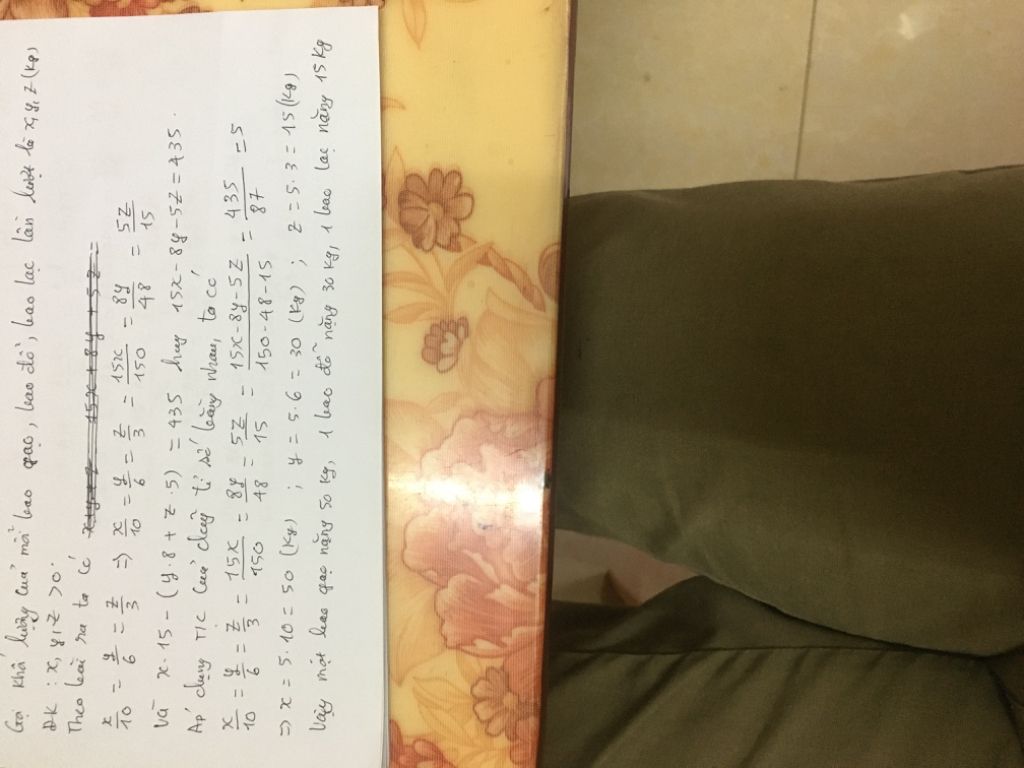 Gọi khối lượng của mỗi bao gạo, bao đỗ, bao lạc lần lượt là x, y, z (kg)
ĐK : x, y, z > 0.
Theo bài ra ta có x+y+z 15x+8y+5z=
x/10 = y/6 = z/3 => x/10 = y/6 = z/3 = 15x/150 = 8y/48 = 5z/15
Và x.15 - (y.8 + z.5) = 435 hay 15x-8y-5z=435.
Áp dụng T/C của dãy tỉ số bằng nhau, ta có
x/10 = y/6 = z/3 = 15x/150 = 8y/48 = 5z/15 = 15x-8y-5z/150-48-15 = 435/87 = 5
=> x = 5.10 = 50 (kg) ; y = 5.6 = 30 (kg) ; z = 5.3 = 15 (kg)
Vậy một bao gạo nặng 50 kg, 1 bao đỗ nặng 30 kg, 1 bao lạc nặng 15 kg